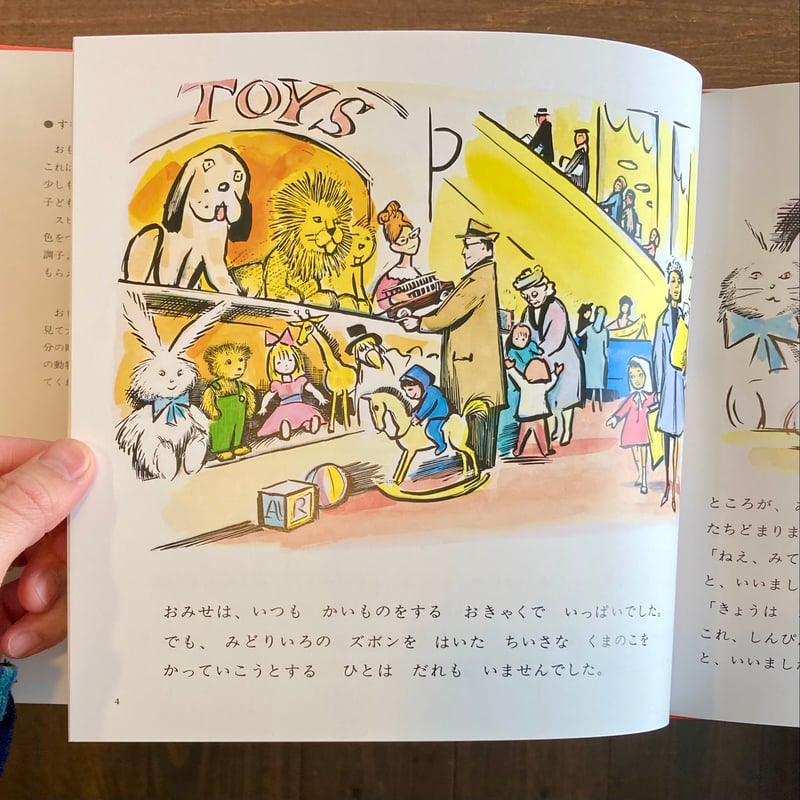 ● す
お
これは
少し
子ども
ス
色をつ
調子
もら
お
見て
分の
の動物
てく
TOYS
A
R
おみせは、いつも　かいものをする　おきゃくで　いっぱいでした。
でも、みどりいろの　ズボンを　はいた　ちいさな　くまのこを
かっていこうとする　ひとは　だれも　いませんでした。
4
ところが、
たちどまりま
「ねえ、みて
と、いいまし
「きょうは
これ、しんぴ
と、いいまし